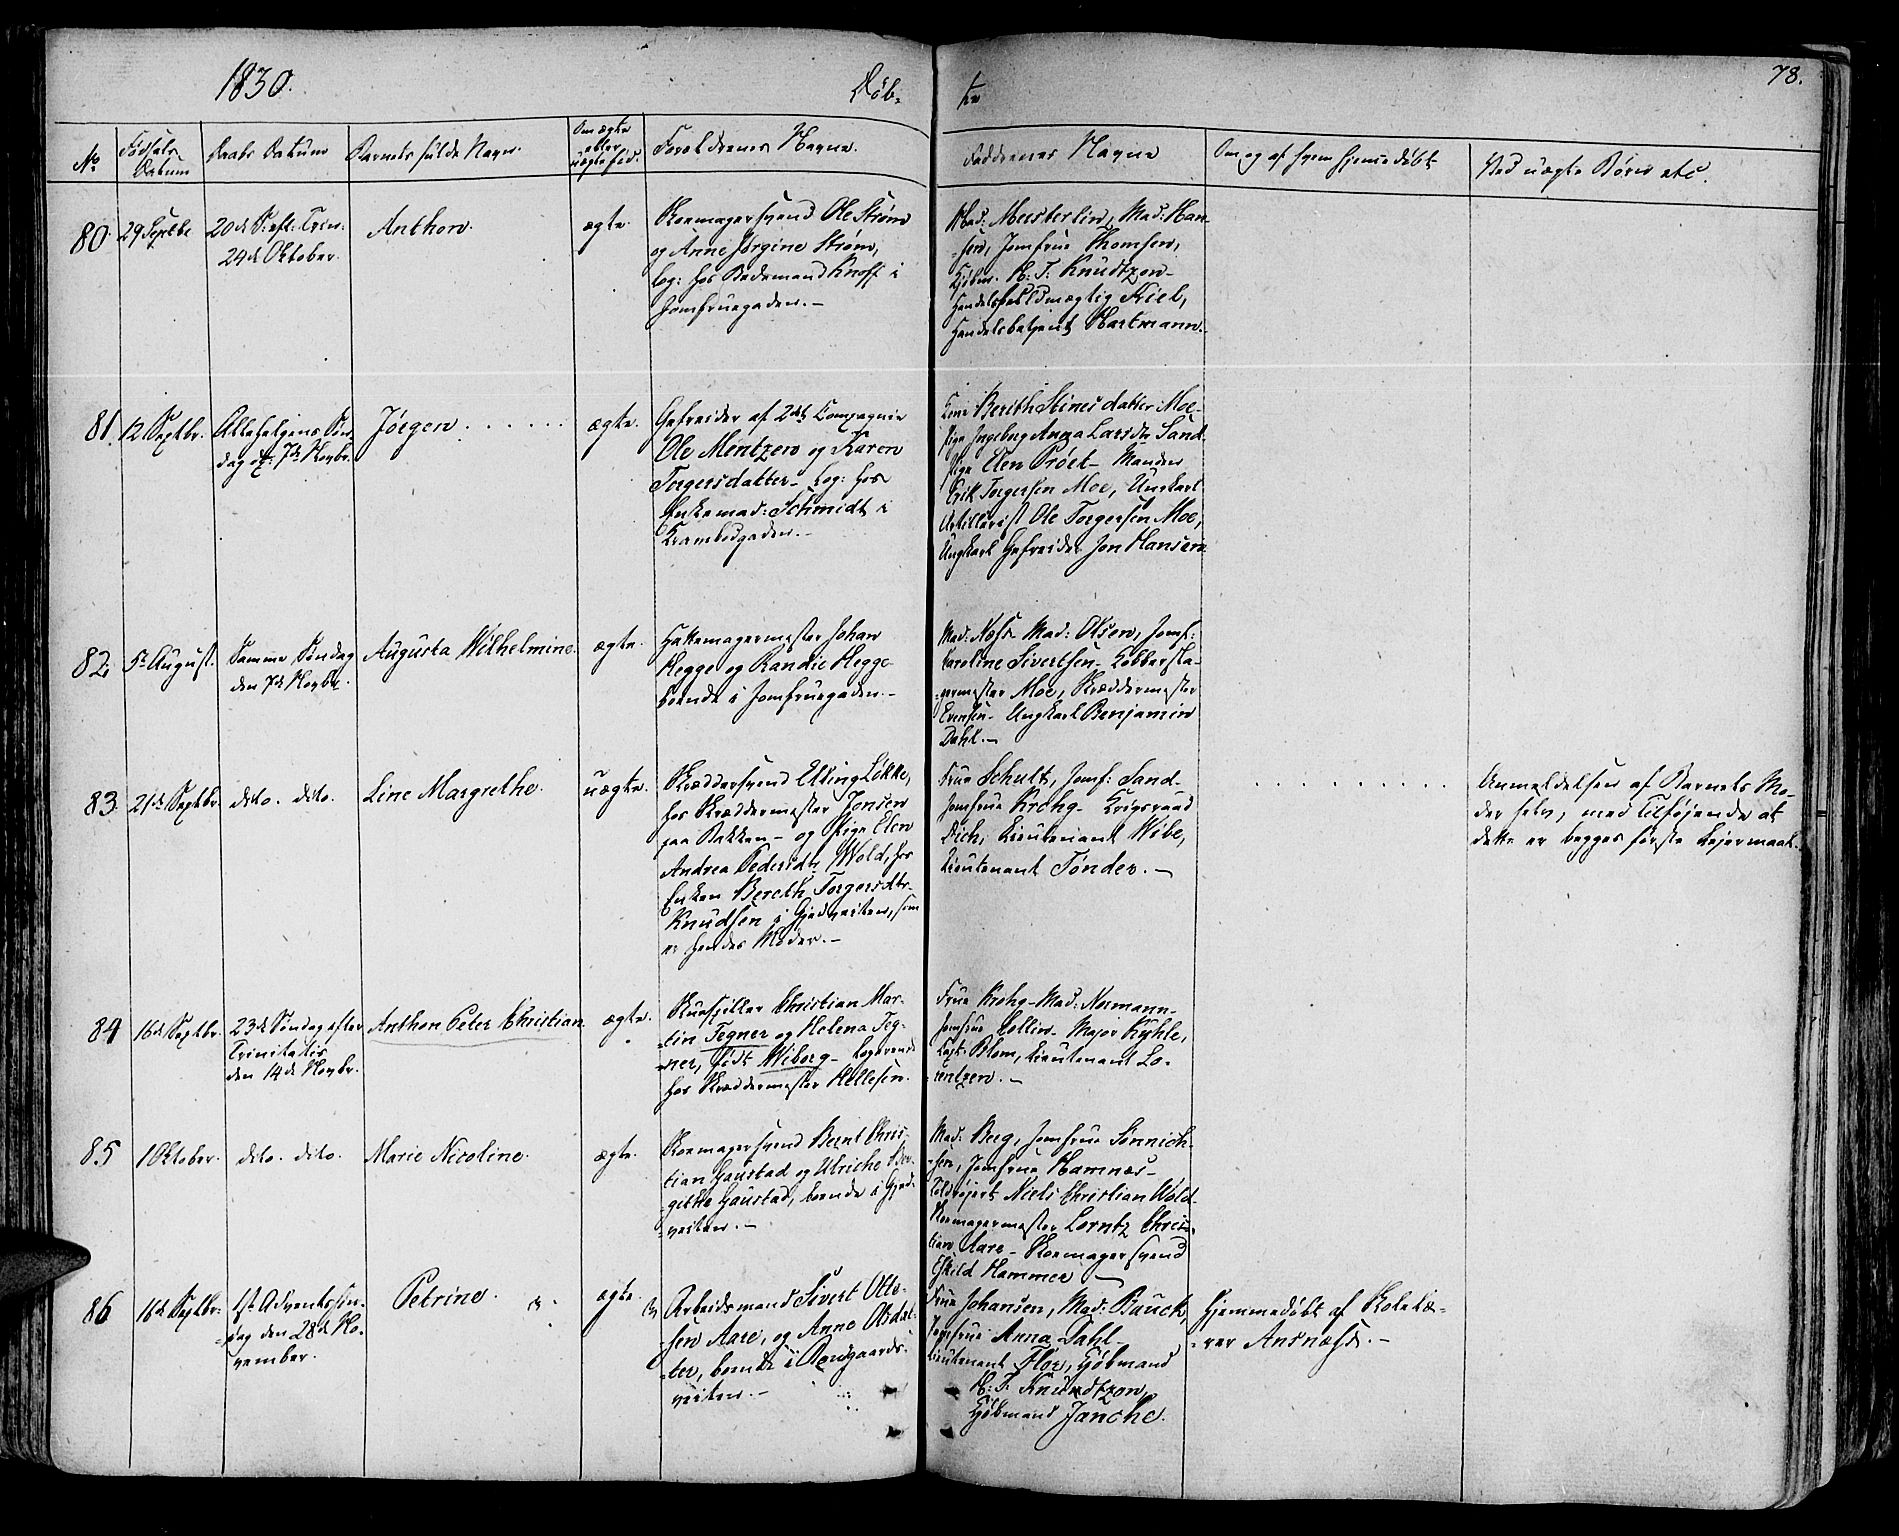 1830.
Døb-
te
78.
No
Fødsels
Datum
Daabs Datum
Barnets fulde Navn.
Om ægte
eller
uægte fød.
Forældrenes Navne.
Faddernes Navne
Om og af hvem hjemmedøbt
Ved uægte Børn etc.
80.
29 Septbr
20de S. eft. Trin.
24de Oktober.
Anthon.
ægte.
Skomagersvend Ole Strøm
og Anne Jørgine Strøm,
log: hos Bedemand Knoff i
Jomfruegaden.-
Mad: Meisterlin, Mad: Han-
-sen, Jomfrue Thomsen,
Kjöbm. H. T. Knudtzon-
Handelsfuldmægtig Friel,
Handelsbetjent Hartmann.
81.
12 Septbr.
Allehelgens Søn-
dag d: 7de Novbr.
Jørgen . . . . . .
ægte.
Gefreider af 2det Compagnie
Ole Mentzen og Karen
Torgersdatter- log: hos
Enkemad: Schmidt i
Krambodgaden.-
Kone Berith Stinesdatter Moe-
Pige Ingeborg Anna Larsdtr Sand-
Pige Elen Prøet- Manden
Erik Torgersen Moe, Ungkarl
Artillerist Ole Torgersen Moe,
Ungkarl Gefreider Jon Hansen
82.
5te August.
Samme Søndag
den 7de Novbr.
Augusta Wilhelmine.
ægte.
Hattemagermester Johan
Hegge og Randie Hegge-
boende i Jomfruegaden.-
Mad: Næss Mad: Olsen, Jomf:
Caroline Sivertsen- Kobbersla-
-germester Moe, Skræddermester
Evensen- Ungkarl Benjamin
Dahl.-
83.
21de Septbr.
dito. dito.
Line Margrethe.
uægte.
Skræddersvend Elling Løkke,
hos Skræddermester Jensen
paa Bakken- og Pige Elen
Andrea Pedersdtr Wold, hos
Enken Bereth Torgersdtr
Knudsen i Gjedveiten, som
er hendes Moder.-
Frue Schult, Jomf: Sand-
Jomfrue Krohg- Krigsraad
Dich, Lieutenant Wibe,
Lieutenant Tønder.-
. . . . . . . . . . .
Anmeldelsen af Barnets Mo-
der selv, med Tilføjende at
dette er begges første Lejermaal.
84
16de Septbr.
23de Søndag efter
Trinitatis
den 14de Novbr.
Anthon Peter Christian.
ægte.
Skuespiller Christian Mar-
-tin Tegner og Helena Teg-
-ner, født Wiborg- logerende
hos Skræddermester Hellesen.
Frue Krohg- Mad: Normann-
Jomfrue Collin- Major Kyhle,
Capt: Blom, Lieutenant Lo-
-rentzen.-
85
1 Oktober.
dito. dito.
Marie Nicoline.
ægte.
Skomagersvend Bernt Chris-
tian Gaustad og Ulriche Bir-
-gitte Gaustad, boende i Gjed-
-veiten.-
Mad: Berg, Jomfrue Sønnich-
-sen, Jomfrue Hamnæs-
Toldrojert Niels Christian Wold
Skomagermester Lorntz Chris-
tian Aare- Skomagersvend
Eskild Hammer-
86
16de Septbr.
1ste Adventssøn-
-dag den 28de No-
vember.
Petrine.
ægte.
Arbeidsmand Sivert Otte-
-sen Aare, og Anne Olsdat-
-ter, boende i Rongaards-
veiten.-
Frue Johansen, Mad: Bauck,
Jomfrue Anna Dahl-
Lieutenant Flor, Kjöbmand
H. T. Knudtzon,
Kjöbmand Janche.
Hjemmedøbt af Skolelæ-
-rer Aasnæss.-